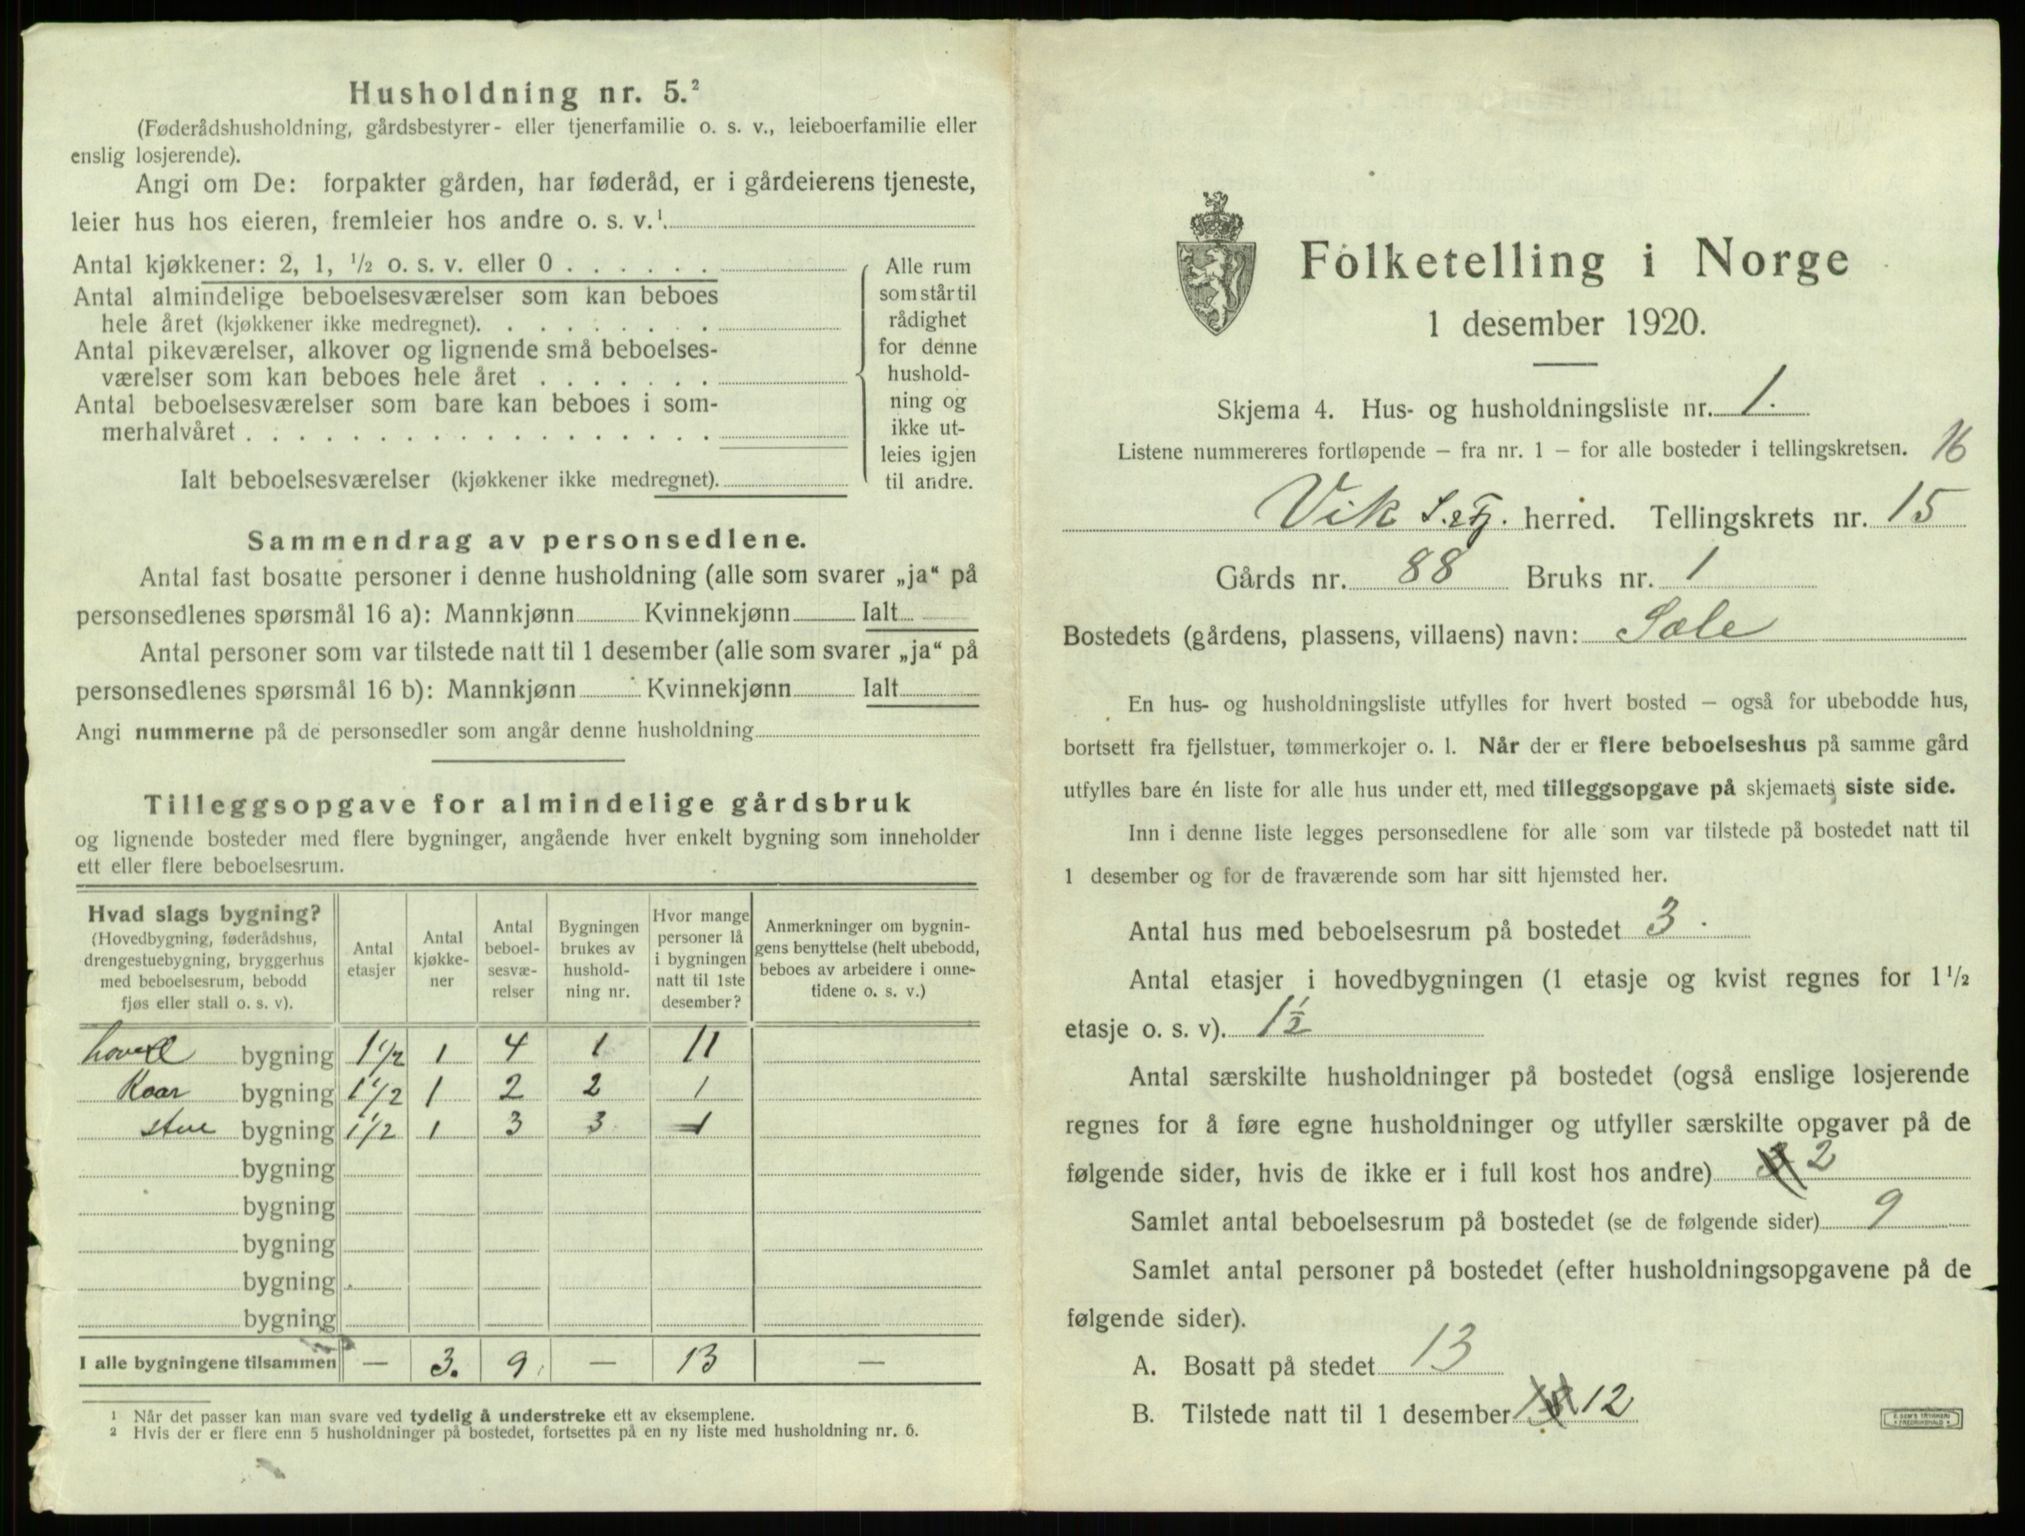 Husholdning nr. 5.²
(Føderådshusholdning, gårdsbestyrer- eller tjenerfamilie o. s. v., leieboerfamilie eller
enslig losjerende).
Angi om De: forpakter gården, har føderåd, er i gårdeierens tjeneste,
leier hus hos eieren, fremleier hos andre o. s. v.¹.
Antal kjøkkener: 2, 1, ½ o. s. v. eller 0 . . . . . .
Antal almindelige beboelsesværelser som kan beboes
hele året (kjøkkener ikke medregnet). . . . . . . . .
Antal pikeværelser, alkover og lignende små beboelses-
værelser som kan beboes hele året . . . . . . .
Antal beboelsesværelser som bare kan beboes i som-
merhalvåret . . . . . . . . . . . . . . . . . .
Ialt beboelsesværelser (kjøkkener ikke medregnet).
Alle rum
som står til
rådighet
for denne
hushold-
ning og
ikke ut-
leies igjen
til andre.
Sammendrag av personsedlene.
Antal fast bosatte personer i denne husholdning (alle som svarer „ja“ på
personsedlenes spørsmål 16 a): Mannkjønn Kvinnekjønn Ialt
Antal personer som var tilstede natt til 1 desember (alle som svarer „ja“ på
personsedlenes spørsmål 16 b): Mannkjønn Kvinnekjønn Ialt
Angi nummerne på de personsedler som angår denne husholdning
Tilleggsopgave for almindelige gårdsbruk
og lignende bosteder med flere bygninger, angående hver enkelt bygning som inneholder
ett eller flere beboelsesrum.
Hvad slags bygning?
(Hovedbygning, føderådshus,
drengestuebygning, bryggerhus
med beboelsesrum, bebodd
fjøs eller stall o. s. v).
Antal
etasjer
Antal
kjøkke-
ner
Antal
beboel-
sesvæ-
relser
Bygningen
brukes av
hushold-
ning nr.
Hvor mange
personer lå
i bygningen
natt til 1ste
desember?
Anmerkninger om bygnin-
gens benyttelse (helt ubebodd,
beboes av arbeidere i onne-
tidene o. s. v.)
hoved bygning 1 1/2 1 4 1 11
Kaar bygning 1 1/2 1 2 2 1
stue bygning 1 1/2 1 3 3 1
bygning
bygning
bygning
bygning
bygning
I alle bygningene tilsammen — 3. 9. — 13 —
¹ Når det passer kan man svare ved tydelig å understreke ett av eksemplene.
² Hvis der er flere enn 5 husholdninger på bostedet, fortsettes på en ny liste med husholdning nr. 6.
Folketelling i Norge
1 desember 1920.
Skjema 4. Hus- og husholdningsliste nr. 1.
Listene nummereres fortløpende – fra nr. 1 – for alle bosteder i tellingskretsen. 16
Vik herred. Tellingskrets nr. 15
Gårds nr. 88 Bruks nr. 1
Bostedets (gårdens, plassens, villaens) navn: Sæle
En hus- og husholdningsliste utfylles for hvert bosted – også for ubebodde hus,
bortsett fra fjellstuer, tømmerkojer o. l. Når der er flere beboelseshus på samme gård
utfylles bare én liste for alle hus under ett, med tilleggsopgave på skjemaets siste side.
Inn i denne liste legges personsedlene for alle som var tilstede på bostedet natt til
1 desember og for de fraværende som har sitt hjemsted her.
Antal hus med beboelsesrum på bostedet 3.
Antal etasjer i hovedbygningen (1 etasje og kvist regnes for 1 ½
etasje o. s. v). 1½
Antal særskilte husholdninger på bostedet (også enslige losjerende
regnes for å føre egne husholdninger og utfyller særskilte opgaver på de
følgende sider, hvis de ikke er i full kost hos andre) 2
Samlet antal beboelsesrum på bostedet (se de følgende sider) 9
Samlet antal personer på bostedet (efter husholdningsopgavene på de
følgende sider).
A. Bosatt på stedet 13
B. Tilstede natt til 1 desember 12